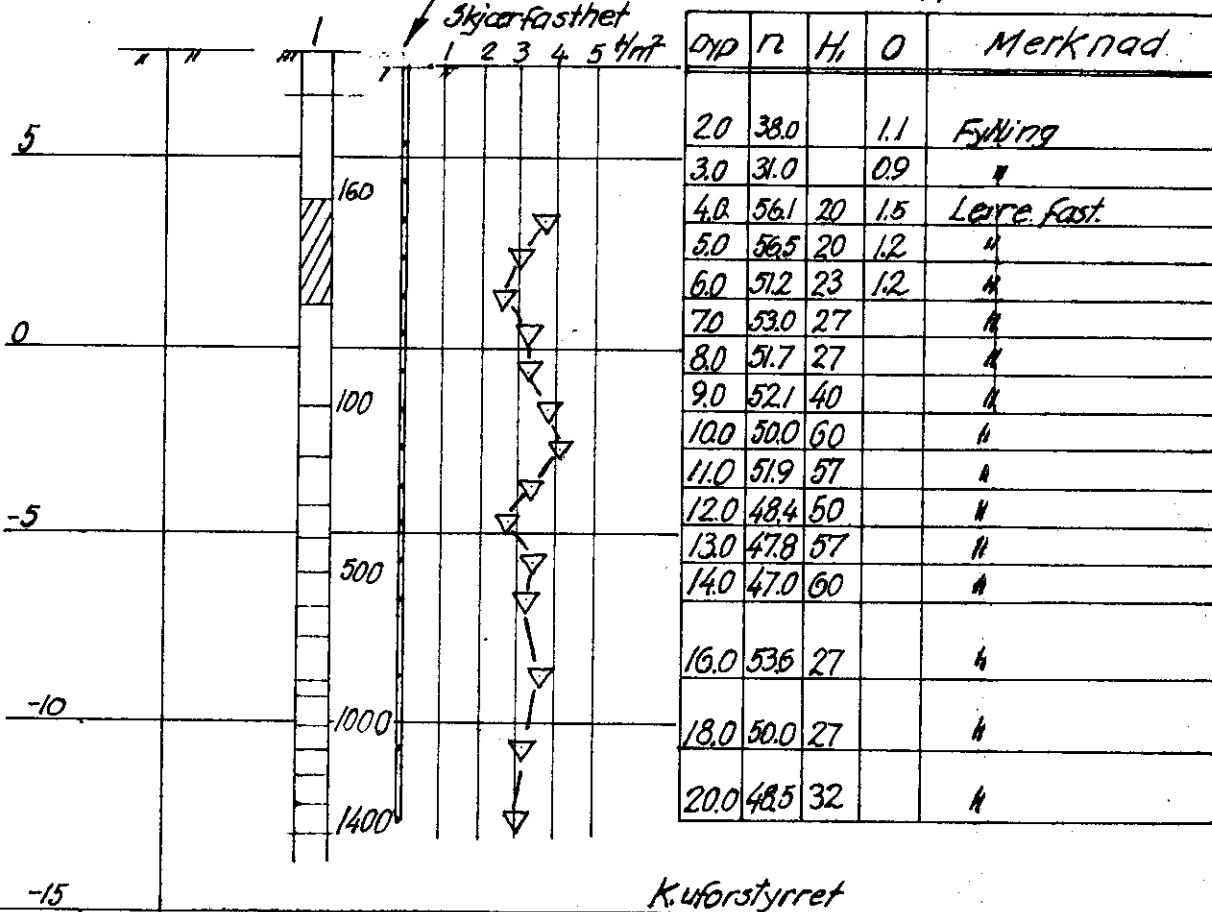 Skjærfasthet
1
1 2 3 4 5 t/m²
5
160
0
100
-5
500
-10
1000
1400
-15
Dyp n H₁ O Merknad
2.0 38.0 1.1 Fylling
3.0 31.0 0.9 "
4.0 56.1 20 1.5 Leire fast.
5.0 56.5 20 1.2 "
6.0 51.2 23 1.2 "
7.0 53.0 27 "
8.0 51.7 27 "
9.0 52.1 40 "
10.0 50.0 60 "
11.0 51.9 57 "
12.0 48.4 50 "
13.0 47.8 57 "
14.0 47.0 60 "
16.0 53.6 27 "
18.0 50.0 27 "
20.0 48.5 32 "
K. uforstyrret